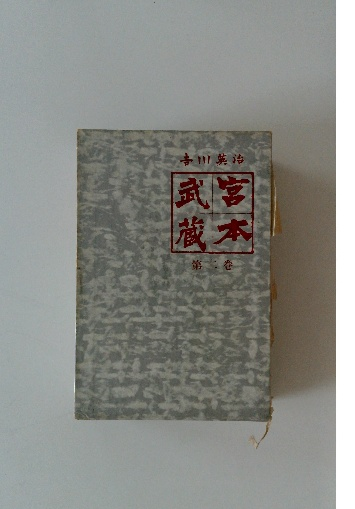 吉川英治
宮本
武蔵
第二巻